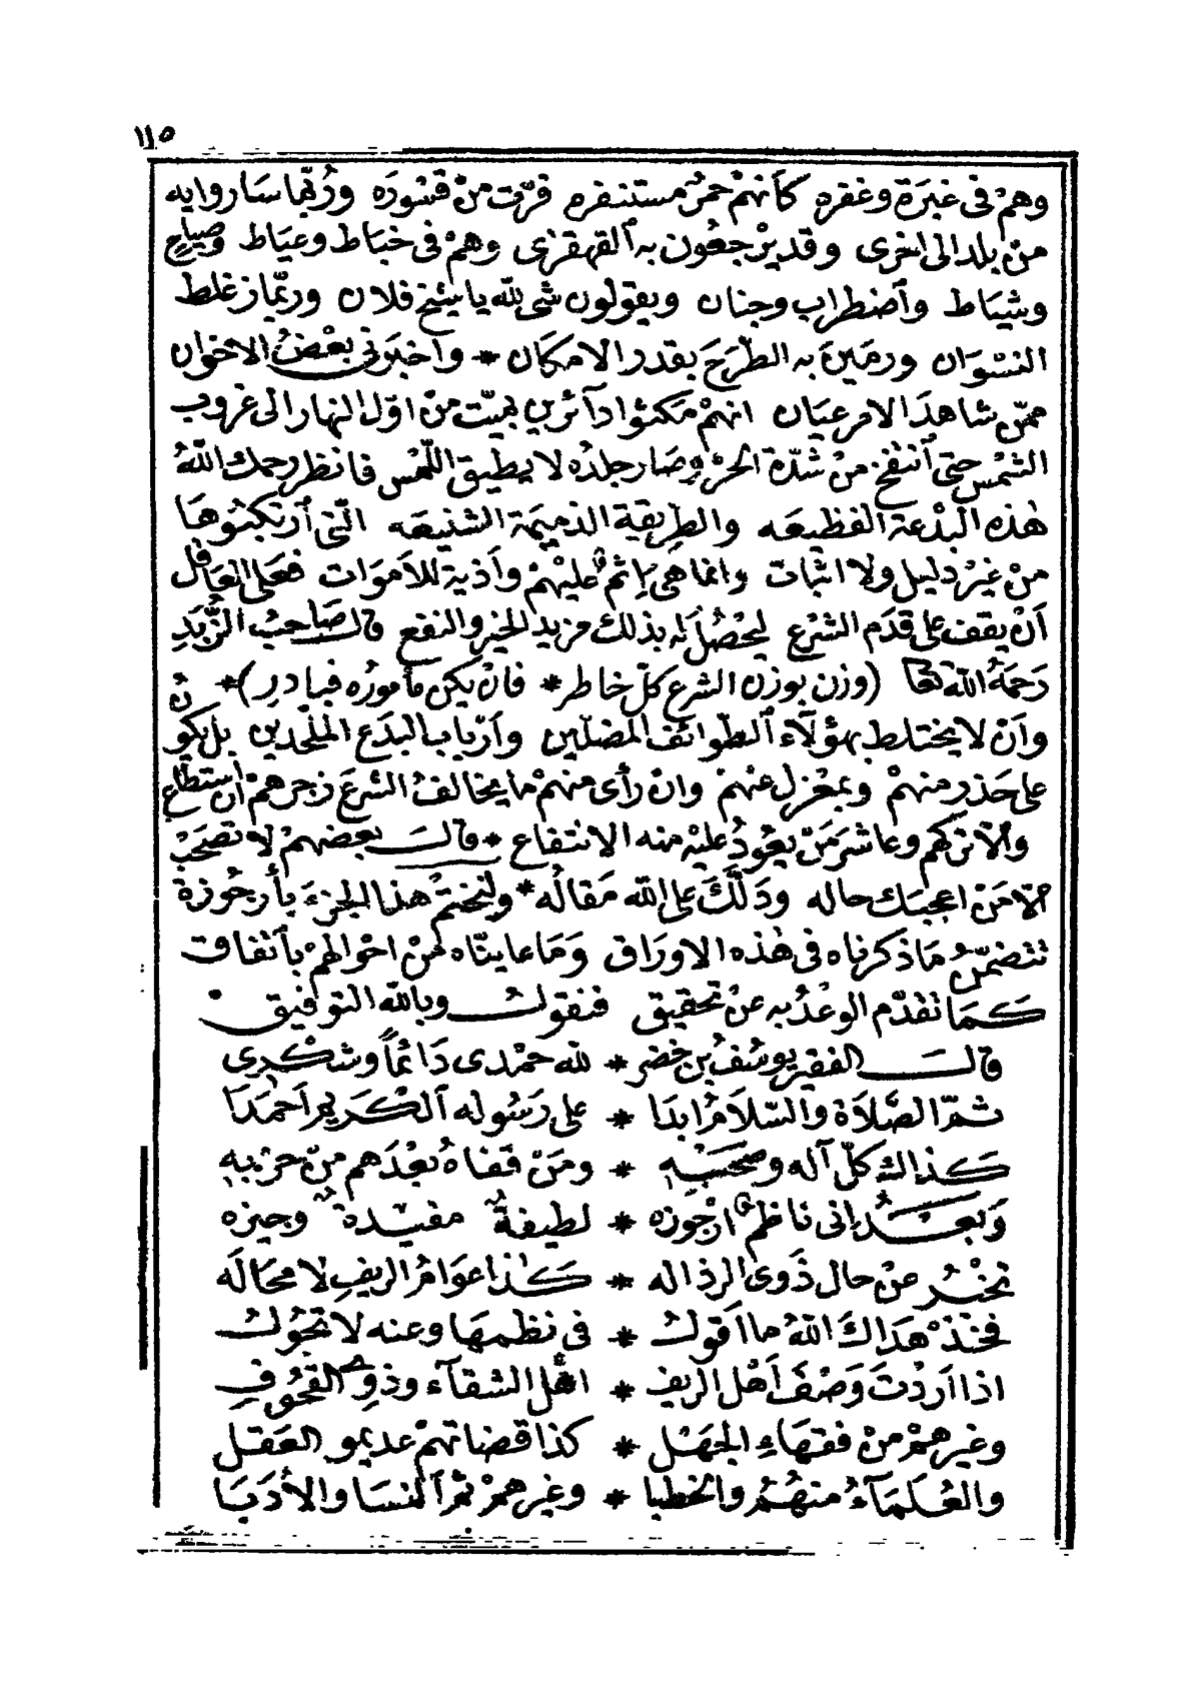 ١١٥
وهمْ فى غبَرَة وغفره كأنهمْ حمُرٌ مستنفره فرّت منْ قسْوَره ورُبّما سَاروا به
منْ بلد الى اخرى وقد يرْجعُون به ٱلقهقرٰى وهمْ فى خبَاط وعيَاط وصيَاح
وشيَاط وٱضطراب وجنان ويقولون شى لله يا شيْخ فلان وربّما زغلط
النسْوَان ورمَينَ به الطّرَحَ بقدر الامكَان * وأخبَرنى بعْضُ الاخوان
ممّن شاهدَ الامر عيَان انهمْ مَكثوا دآئرين بميّت منْ اوّل النهار الى غروب
الشمْس حتى ٱنتفخ منْ شدّة الحَرّ وصَار جلدُه لا يطيق اللّمْس فانظر رحمك اللهُ
هٰذه البْدعة الفظيعَه والطِريقة الذميمَة الشنيعَه الّتى ٱرْتكبُوهَا
منْ غيْر دليل ولا اثبات وانما هى إثمٌ عليْهمْ وأذية للأموَات فعَلى العَاقل
أنْ يقف على قدَم الشرْع ليَحْصُلَ له بذلك مزيد الخيْر والنفع قالَ صَاحبُ الزُّبَدِ
رَحمَهُ الله تعٰا (وزن بوزن الشرع كلّ خاطر * فانْ يكن مأمورُه فبادرِ) *
وأنْ لا يختلط بهؤلآء ٱلطّوائف المُضلّين وأرْباب البدَع الملْحدين بل يكوُنُ
على حَذر منهمْ وبمَعْزل عنهمْ وانْ رأى منهمْ ما يخالفُ الشرْعَ زجرهمْ ان استطاع
والّا تركهُم وعاشرَ مَنْ يعُودُ عليْه منه الانتفاع * قالَ بعضهمْ لا تصْحَبْ
الّا مَنْ اعجبَك حاله ودَلَّكَ على الله مَقالُه * ولنخْتمْ هٰذا الجزءَ بأرجُوزة
تتضمّنُ مَا ذكرناه فى هٰذه الاورَاق وَمَا عاينّاه منْ احْوالهمْ بٱتفاق
كَمَا تقدّم الوعْدُ به عنْ تحقيق فنقولُ وبالله التوفيق
قالَ الفقير يوسُفُ بن خضر * لله حمْدى دَائماً وشكْرى
ثمّ الصّلاة والسّلامُ ابدَا * على رَسُوله ٱلكَريم أحمَدَا
كذاك كلّ آله وصَحْبهِ * ومَنْ قفاهُ بعْدَهم منْ حزْبهِ
وَبعدُ إنى ناظمٌ ارْجُوزه * لطيفةٌ مفيْدةٌ وجيزه
تخبرُ عنْ حال ذَوى الرذاله * كذا عوَامُ الريفِ لا محَالَه
فخذْ هَدَاكَ اللهُ ما أقولُ * فى نظمهَا وعنه لا تحُولُ
اذا اردْتَ وَصْفَ أهْل الريف * اهْل الشقآء وذوى القحُوفِ
وغيرهمْ منْ فقهَاءِ الجَهْل * كذا قضاتهمْ عديمو العَقل
والعُلمَآءُ منهُمُ والخطبا * وغيرهمْ ثمّ النسَا والأُدَبَا